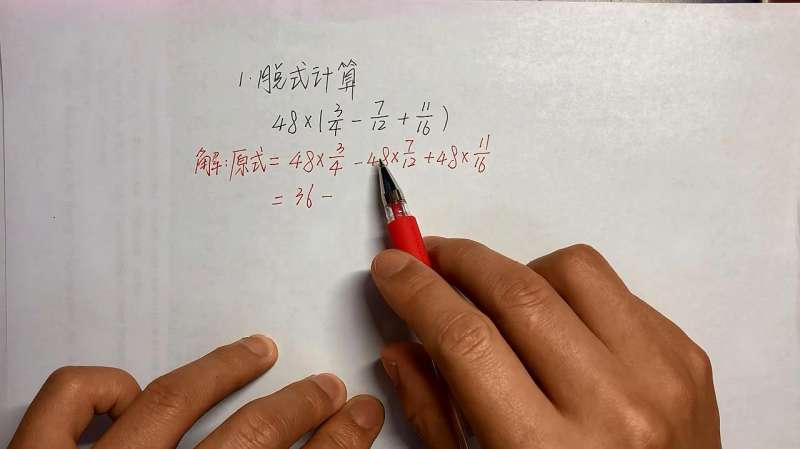 1.脱式计算
48×(3/4-7/12+11/16)
解:原式=48×3/4-48×7/12+48×11/16
=36-